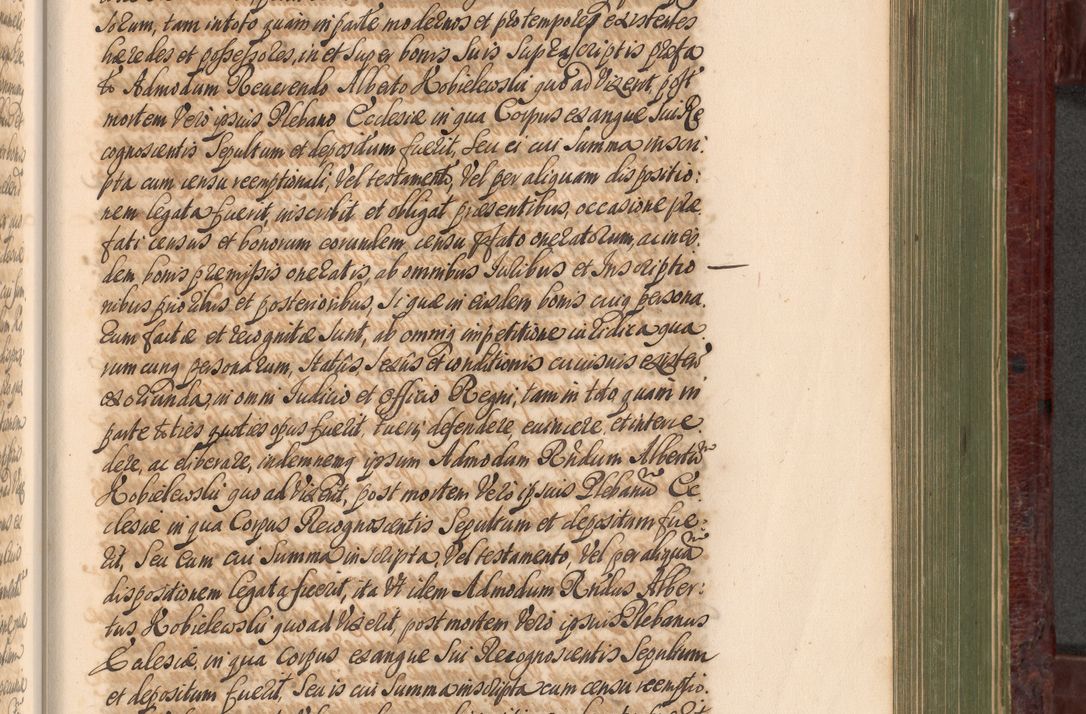 sorum, tam in toto quam in parte modernos et pro tempore existentes
hæredes et possessores, in et super bonis suis suprascriptis præfa
to Admodum Reuerendo Alberto Kobielewski quoad vixerit, post
mortem vero ipsius Plebano Ecclesiæ in qua Corpus exangue sui Re
cognoscentis Sepultum et depositum fuerit, seu ei cui Summa inscri:
pta cum censu reemptionali, vel testamento, vel per aliquam dispositio:
nem legata fuerit, inscribit et obligat præsentibus, occasione præ
fati census et bonorum eorundem, censu pfato oneratorum, ac in eo
dem bonis præmissis oneratis, ab omnibus Iuribus et Inscriptio
nibus prioribus et posterioribus, si quæ in eisdem bonis cuiq persona
rum factæ et recognitæ sunt, ab omniq impetitione iuridica qua
rumcunq personarum, Status, Sexus et conditionis cuiusuis existen
ex oriunda, in omni Iudicio et officio Regni, tam in toto quam in
parte toties quoties opus fuerit, tueri, defendere euincere, et interce
dere, ac eliberare, indemnemq ipsum Admodum Rndum Albertum
Kobielewski quoad vixerit, post mortem vero ipsius Plebanum Ec
clesiæ in qua Corpus Recognoscentis Sepultum et depositum fue:
rit, seu eum cui Summa inscripta, vel testamento, vel per aliquam
dispositionem legata fuerit, ita vt idem Admodum Rndus Alber:
tus Kobielewski quoad vixerit, post mortem vero ipsius Plebanus
Ecclesiæ, in qua Corpus exangue sui Recognoscentis Sepultum
et depositum fuerit, seu is cui Summa inscripta cum censu reemptio.